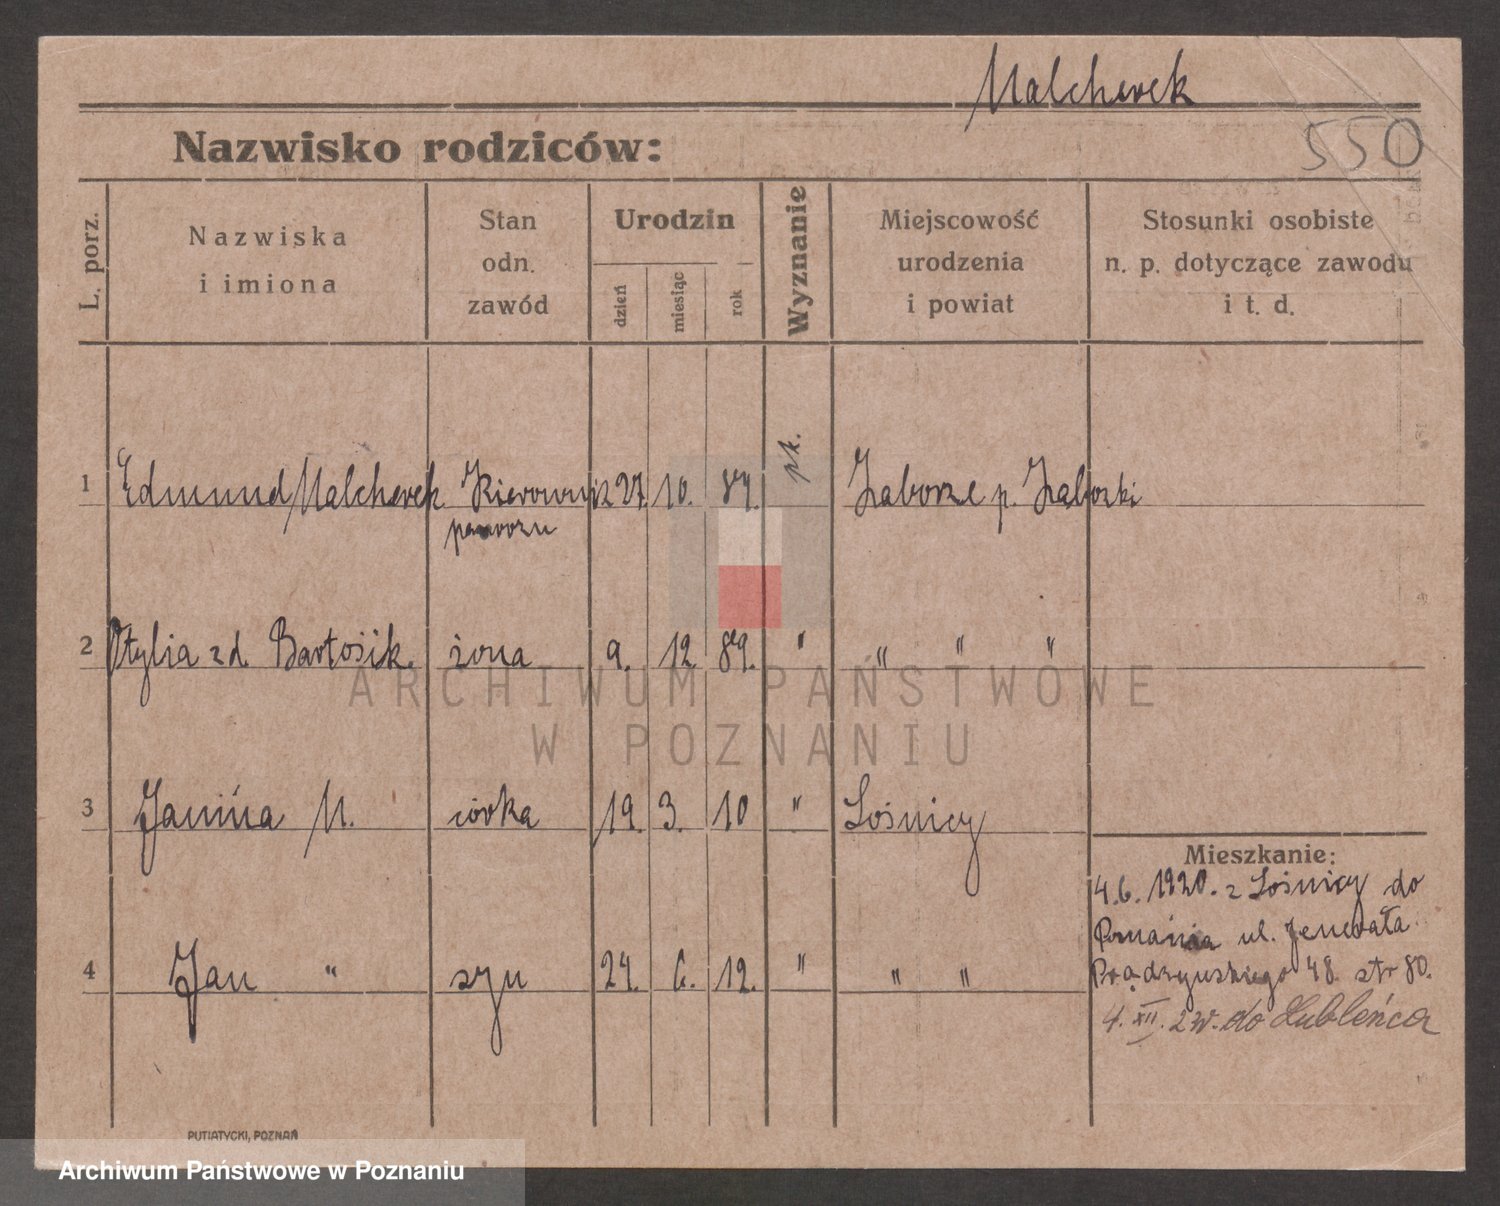 Malcherek
550
Nazwisko rodziców:
L. porz.
Nazwiska
i imiona
Stan
odn.
zawód
Urodzin
dzień
miesiąc
rok
Wyznanie
Miejscowość
urodzenia
i powiat
Stosunki osobiste
n. p. dotyczące zawodu
i t. d.
1 Edmund Malcherek Kierownik 27. 10. rk. Zaborze p. Zaborski
2 Otylia zd. Bartosik. żona 9. 12. 89. " " " "
3 Janina M. córka 19. 3. 10 " Lośnicy
4 Jan " syn 24. 6. 12. " " "
Mieszkanie:
4.6. 1920. z Lośnicy do
Poznania ul. Jenerała
Prądzyńskiego 48. str 80.
4. XII. 2 w. do Lubleńca
PUTIATYCKI, POZNAŃ
ARCHIWUM PAŃSTWOWE
W POZNANIU
Archiwum Państwowe w Poznaniu